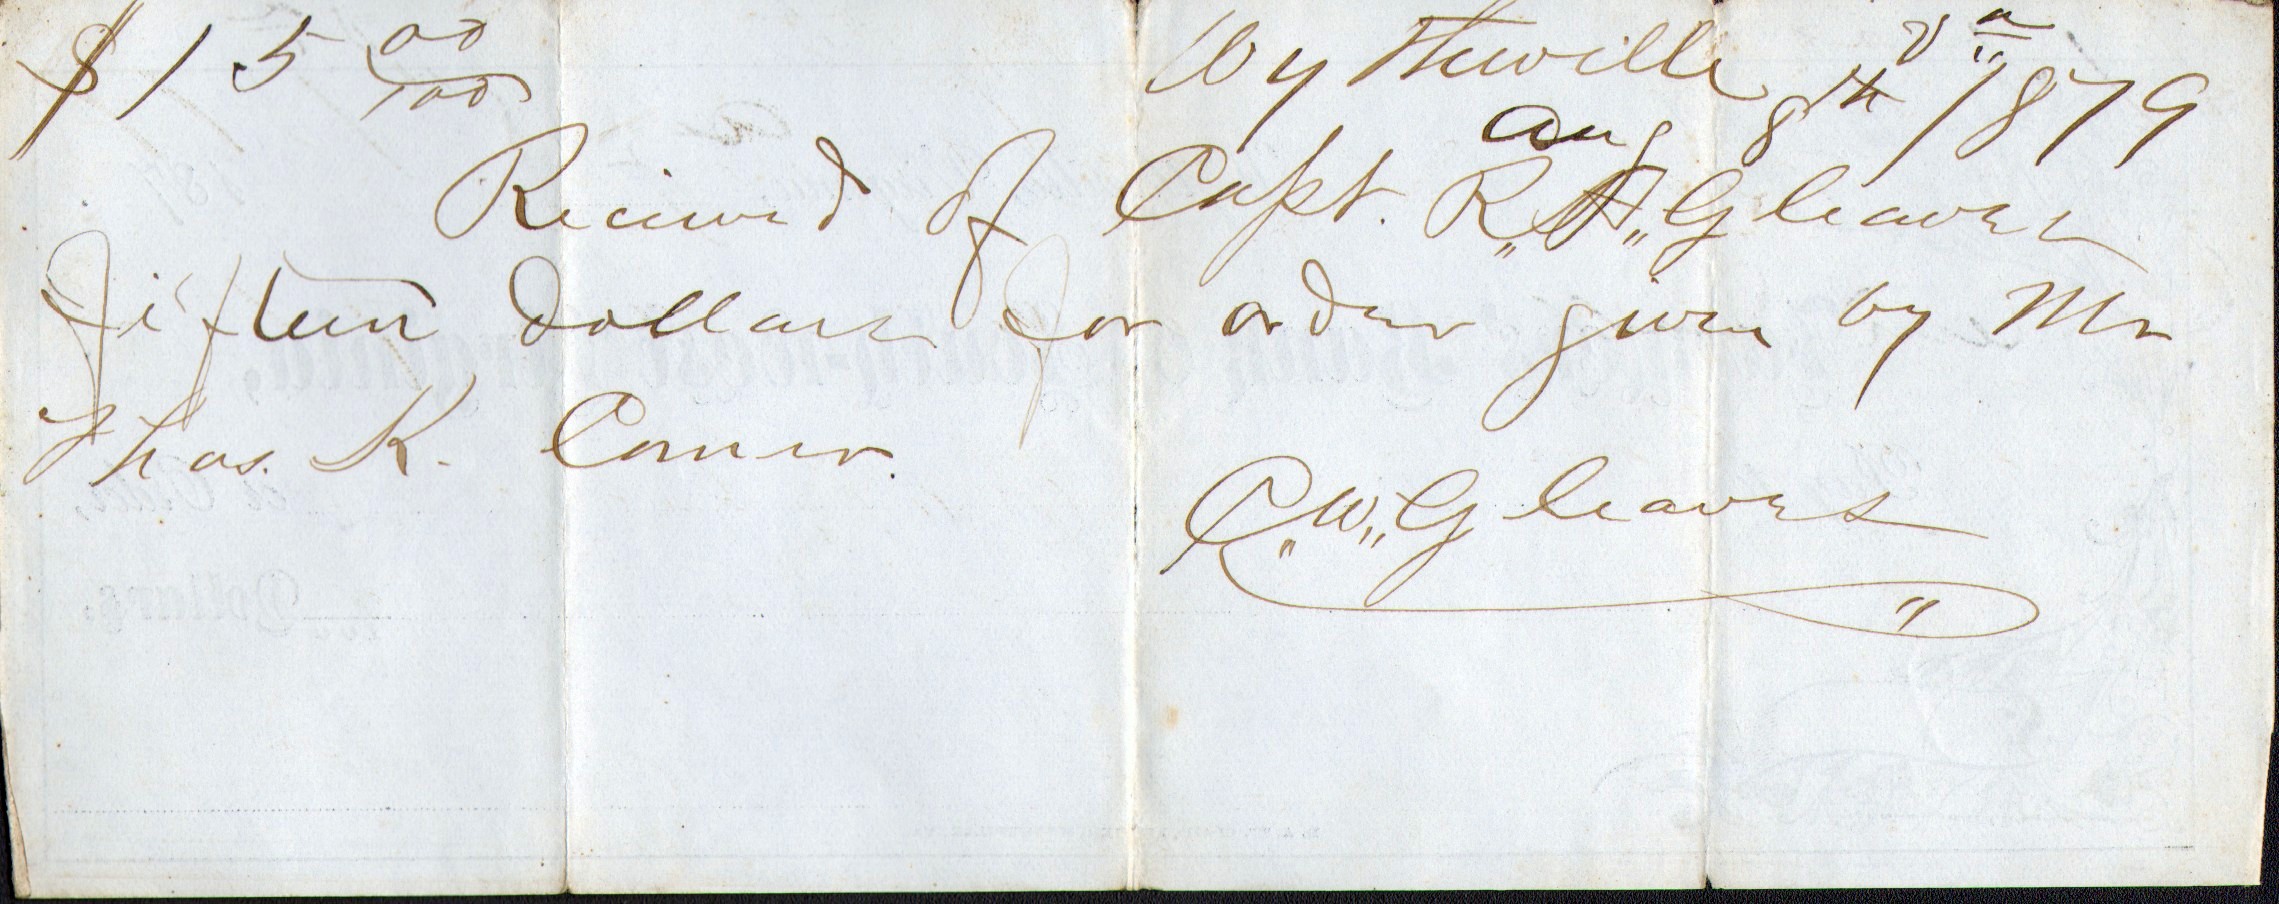 $15 00/100 Wytheville Va
Aug 8th 1879
Received of Capt. R. H. Gleaves
fifteen dollars for order given by Mr
Thos. K. Conner.
C. W. Gleaves